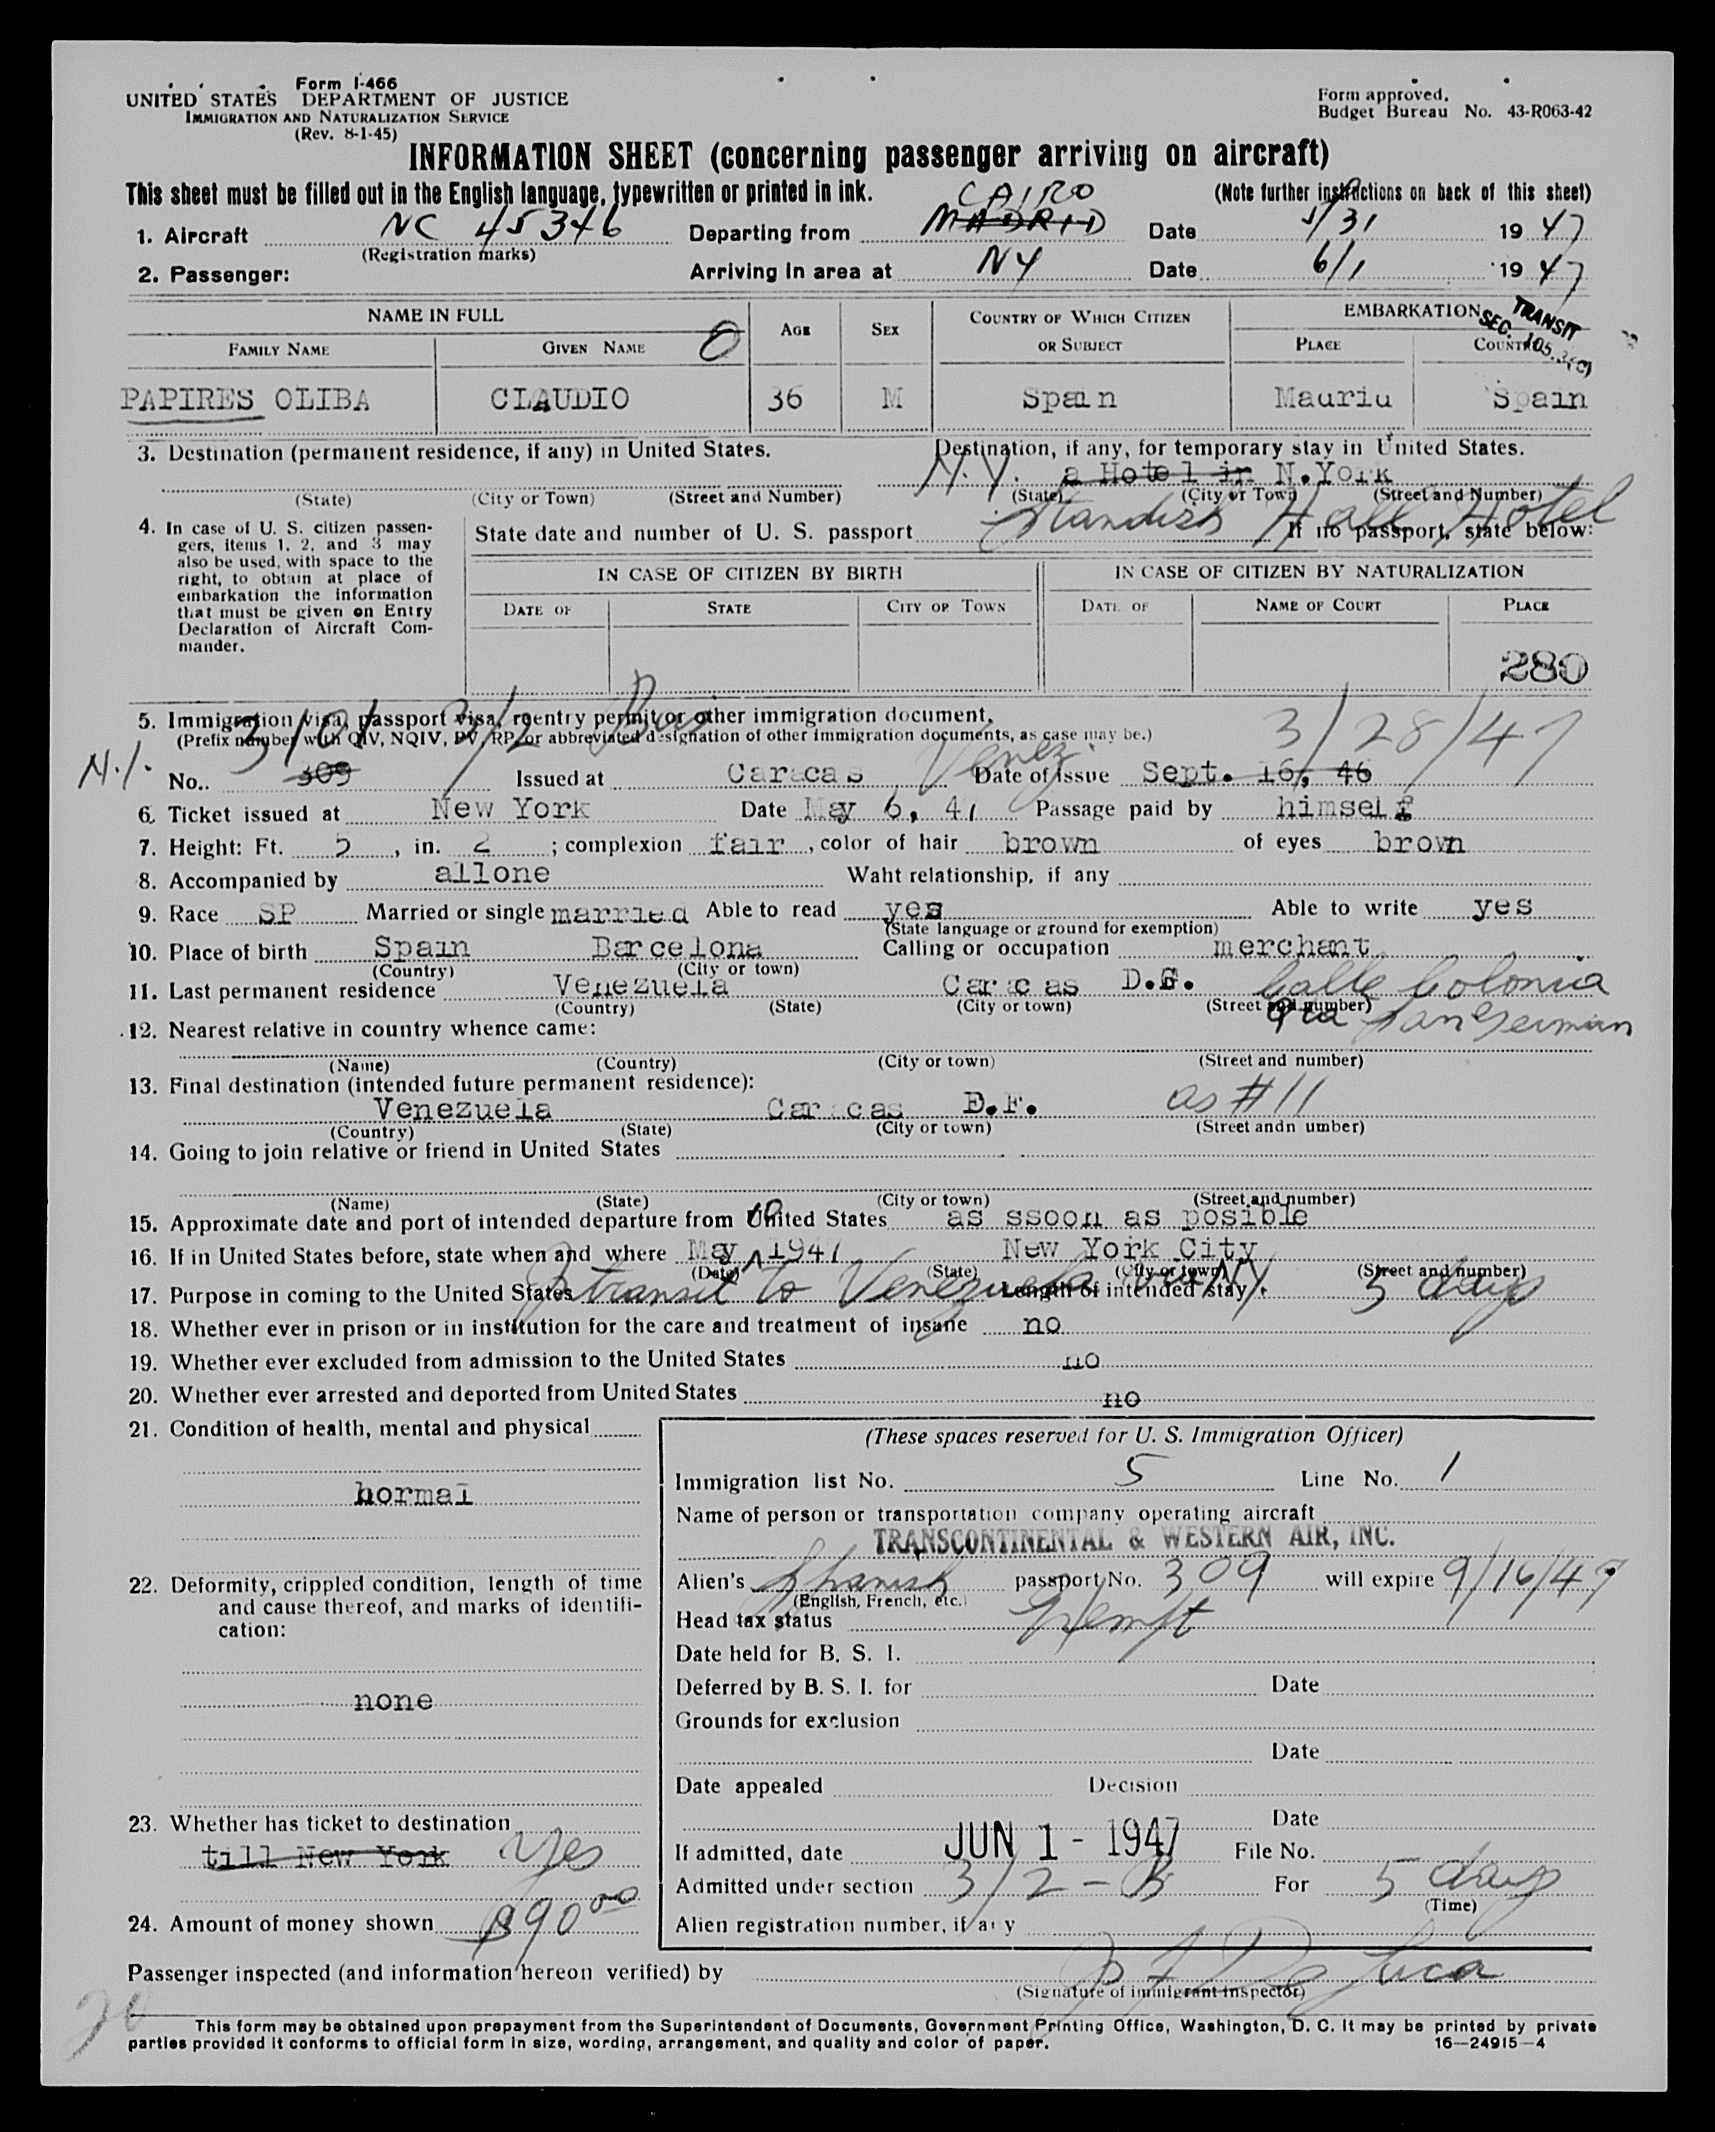 Form I-466
UNITED STATES DEPARTMENT OF JUSTICE
IMMIGRATION AND NATURALIZATION SERVICE
(Rev. 8-1-45)
Form approved.
Budget Bureau No. 43-R063-42
INFORMATION SHEET (concerning passenger arriving on aircraft)
This sheet must be filled out in the English language, typewritten or printed in ink.
(Note further instructions on back of this sheet)
CAIRO
1. Aircraft NC 45346 Departing from MADRID Date 5/31 1947
(Registration marks)
2. Passenger: Arriving in area at NY Date 6/1 1947
TRANSIT
SEC.
NAME IN FULL
FAMILY NAME GIVEN NAME AGE SEX COUNTRY OF WHICH CITIZEN OR SUBJECT EMBARKATION PLACE COUNTRY
PAPIRES OLIBA CLAUDIO 36 M Spain Mauriu Spain
3. Destination (permanent residence, if any) in United States. Destination, if any, for temporary stay in United States.
N.Y. a Hotel in N.York
(State) (City or Town) (Street and Number) (State) (City or Town) (Street and Number)
Standish Hall Hotel
4. In case of U. S. citizen passengers, items 1, 2, and 3 may also be used, with space to the right, to obtain at place of embarkation the information that must be given on Entry Declaration of Aircraft Commander.
State date and number of U. S. passport If no passport, state below:
IN CASE OF CITIZEN BY BIRTH IN CASE OF CITIZEN BY NATURALIZATION
DATE OF STATE CITY OR TOWN DATE OF NAME OF COURT PLACE
280
5. Immigration visa, passport visa, reentry permit or other immigration document.
(Prefix number with QIV, NQIV, PV, RP, or abbreviated designation of other immigration documents, as case may be.)
3/28/47
No. 309 Issued at Caracas Venez. Date of issue Sept. 16, 46
6. Ticket issued at New York Date May 6, 47 Passage paid by himself
7. Height: Ft. 5, in. 2; complexion fair, color of hair brown of eyes brown
8. Accompanied by allone Waht relationship, if any
9. Race SP Married or single married Able to read yes Able to write yes
(State language or ground for exemption)
10. Place of birth Spain Barcelona Calling or occupation merchant
(Country) (City or town)
11. Last permanent residence Venezuela Caracas D.F. Calle Colonia
(Country) (State) (City or town) (Street and number)
Qta San German
12. Nearest relative in country whence came:
(Name) (Country) (City or town) (Street and number)
13. Final destination (intended future permanent residence):
Venezuela Caracas D.F. as #11
(Country) (State) (City or town) (Street andn umber)
14. Going to join relative or friend in United States
(Name) (State) (City or town) (Street and number)
15. Approximate date and port of intended departure from United States as ssoon as posible
16. If in United States before, state when and where May 1947 New York City
(Date) (State) (City or town) (Street and number)
17. Purpose in coming to the United States transit to Venezuela via NY Length of intended stay. 5 days
18. Whether ever in prison or in institution for the care and treatment of insane no
19. Whether ever excluded from admission to the United States no
20. Whether ever arrested and deported from United States no
21. Condition of health, mental and physical
normal
22. Deformity, crippled condition, length of time and cause thereof, and marks of identification:
none
23. Whether has ticket to destination
till New York Yes
24. Amount of money shown $90.00
(These spaces reserved for U. S. Immigration Officer)
Immigration list No. 5 Line No. 1
Name of person or transportation company operating aircraft
TRANSCONTINENTAL & WESTERN AIR, INC.
Alien's Spanish passport No. 309 will expire 9/16/47
(English, French, etc.)
Head tax status Exempt
Date held for B. S. I.
Deferred by B. S. I. for Date
Grounds for exclusion
Date
Date appealed Decision
Date
If admitted, date JUN 1 - 1947 File No.
Admitted under section 3/2-B For 5 days
(Time)
Alien registration number, if any
Passenger inspected (and information hereon verified) by
(Signature of immigrant inspector)
20
This form may be obtained upon prepayment from the Superintendent of Documents, Government Printing Office, Washington, D. C. It may be printed by private
parties provided it conforms to official form in size, wording, arrangement, and quality and color of paper.
16—24915-4